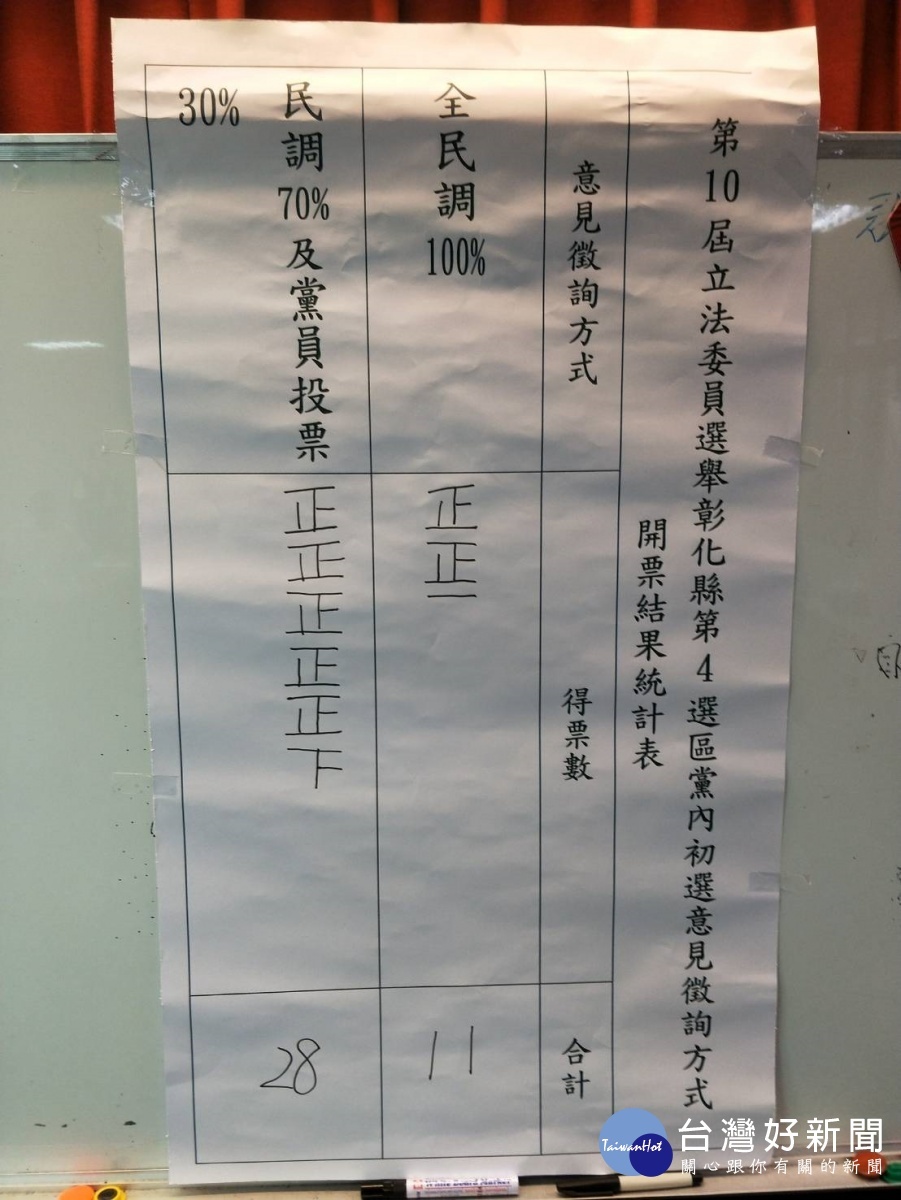 第10屆立法委員選舉彰化縣第4選區黨內初選意見徵詢方式
開票結果統計表
意見徵詢方式
得票數
合計
全民調100%
正正一
11
民調70%及黨員投票
30%
正正正正正下
28
TaiwanHot
台灣好新聞
關心跟你有關的新聞
White Board Marker